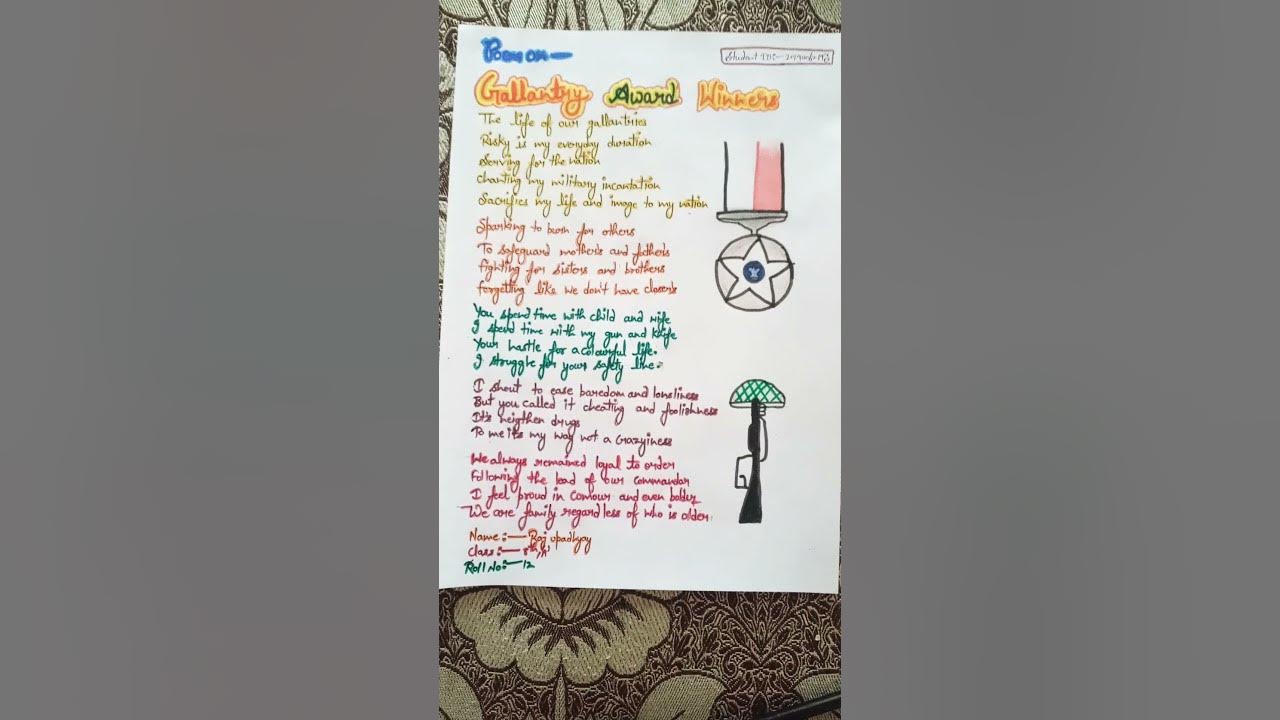 Poem on —
Student ID:-
Gallantry Award Winners
The life of our gallantries
Risky is my everyday duration
Serving for the nation
chanting my military incantation
Sacrifies my life and image to my nation
Sparking to born for others
To safeguard mother's and father's
fighting for sisters and brothers
forgetting like we don't have closer's
You spend time with child and wife
I spend time with my gun and knife
Your hastle for a colourful life.
I struggle for your safety line.
I shout to ease baredom and lonsliness
But you called it cheating and foolishness
It's neigthen drugs
To me its my way not a Crazyiness
We always remained loyal to order
Following the lead of our commandar
I feel proud in Comour and even bolder
We are family regardless of who is older.
Name:— Raj upadhyay
Class:— 8th,
Roll No:— 12